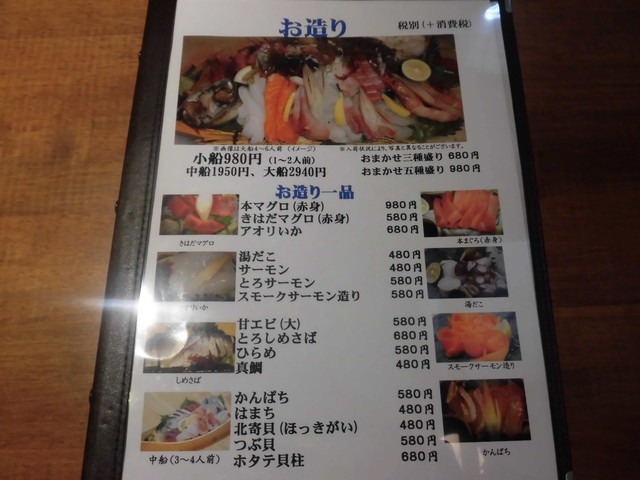 お造り
税別(+消費税)
※画像は大船4～6人前(イメージ)
※入荷状況により、写真と異なることがございます。
小船980円(1～2人前)
おまかせ三種盛り 680円
中船1950円、大船2940円
おまかせ五種盛り 980円
お造り一品
本マグロ(赤身) 980円
きはだマグロ(赤身) 580円
アオリいか 680円
きはだマグロ
本まぐろ(赤身)
湯だこ 480円
サーモン 480円
とろサーモン 580円
スモークサーモン造り 580円
湯だこ
甘エビ(大) 580円
とろしめさば 680円
ひらめ 580円
真鯛 480円
しめさば
スモークサーモン造り
かんぱち 580円
はまち 480円
北寄貝(ほっきがい) 480円
つぶ貝 580円
ホタテ貝柱 680円
中船(3～4人前)
かんぱち